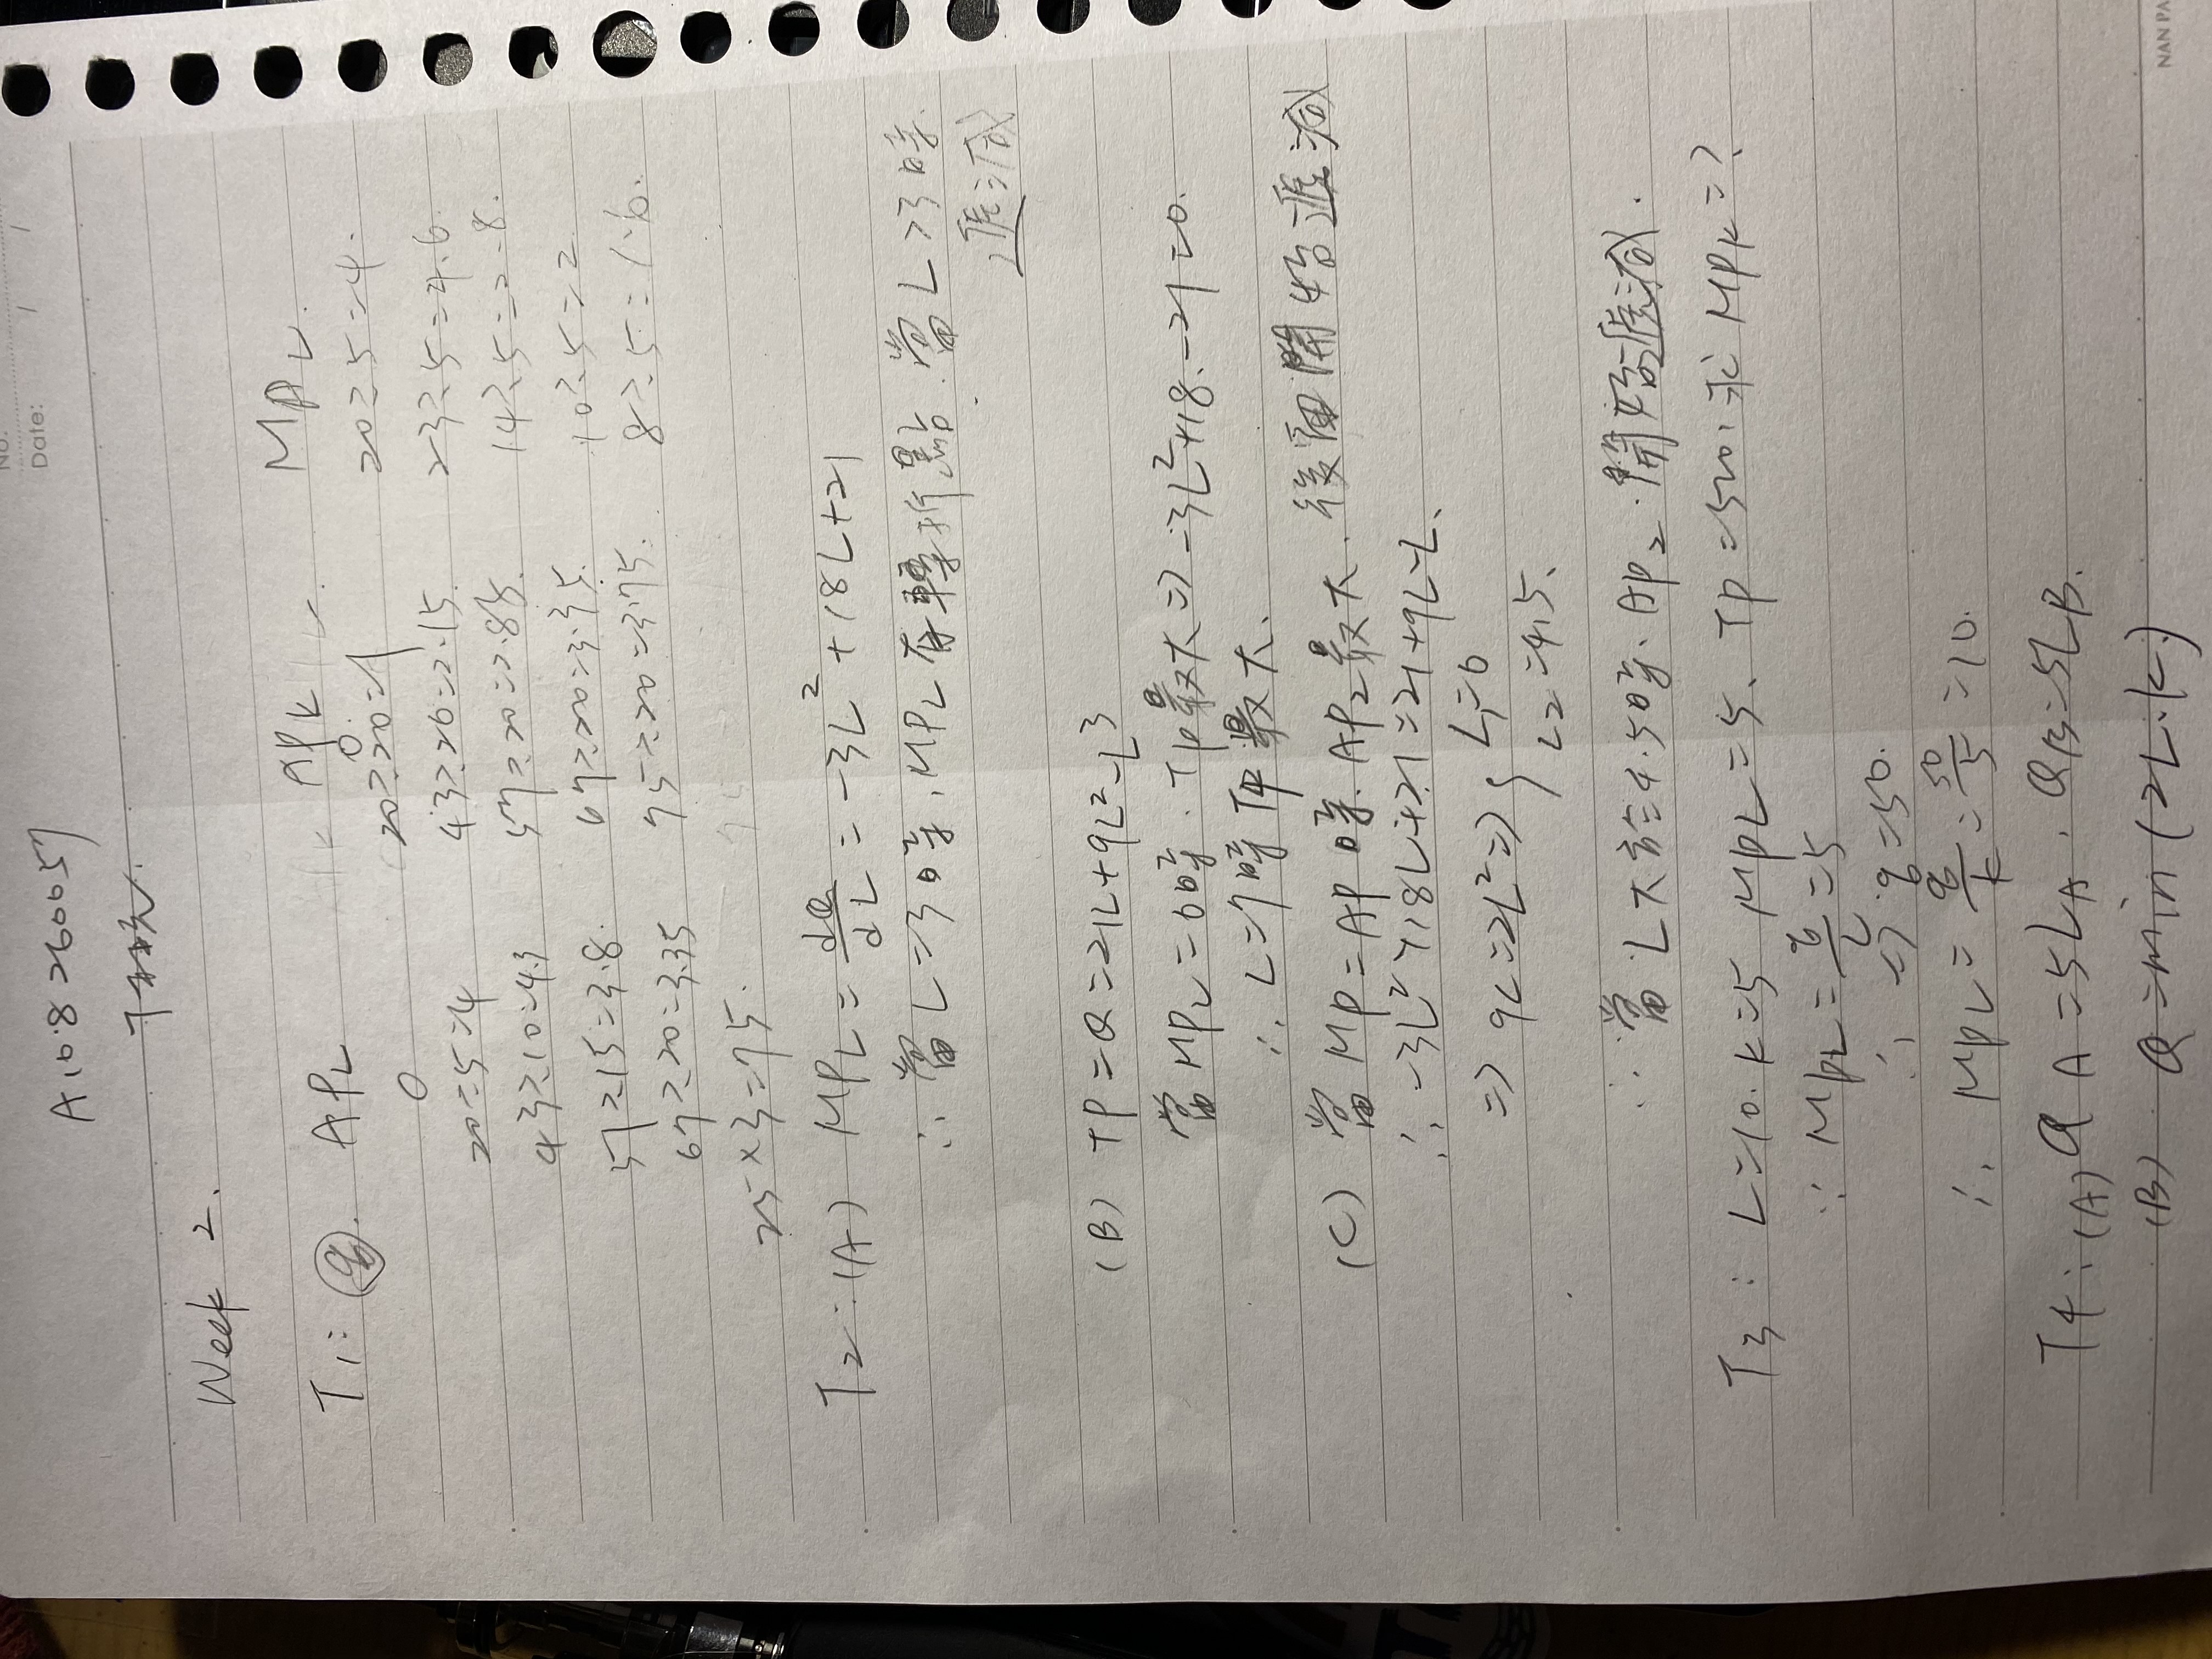 No.
Date: / /
A108260057
Week 2.
T1: q. APL APK MPL.
0 0
20÷5=4 20÷20=1 20÷5=4.
43÷10=43 43÷20=2.15. 23÷5=4.6
57÷15=3.8. 57÷20=2.85. 14÷5=2.8.
67÷20=3.35 67÷20=3.35. 10÷5=2
25×3=75. 75÷20=3.75. 8÷5=1.6.
T2: (A) MPL = dQ/dL = -3L²+18L+21
∴ 當L=3時, MPL有轉折點. 當L>3時.
遞減
(B) TP=Q=21L+9L²-L³
當MPL=0時. TP最大=> -3L²+18.-21=0.
∴ L=7時TP最大.
(C) 當MP=AP時. APL最大. 後面開始遞減
∴ -3L²+18L+21=21+9L-L.
=> 9L=2L² => { L1=0
L2=4.5.
∴ 當L大於4.5時. APL. 開始遞減.
T3: L=10. K=5 MPL=5. TP=500, 求MPK=?
∵ MPL = q/L = 5
∴ => q=50.
∴ MPL = q/K = 50/5 = 10.
T4: (A) QA=5LA. QB=5LB.
(B) Q=min(2L.K.)
NAN PA